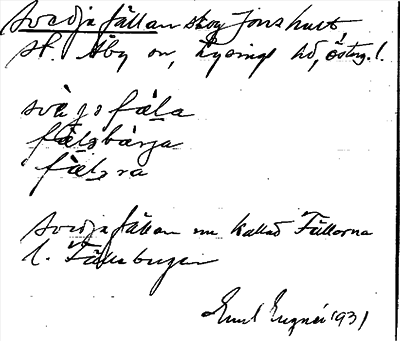 Svedjafällan skog Jonshult
sk. Åby sn, Lysings hd, Österg.!
svæjsfæla
fælsbärja
fælsra
Svedjafällan nu kallad Fällorna
l. Fällebergen
Emil 1931